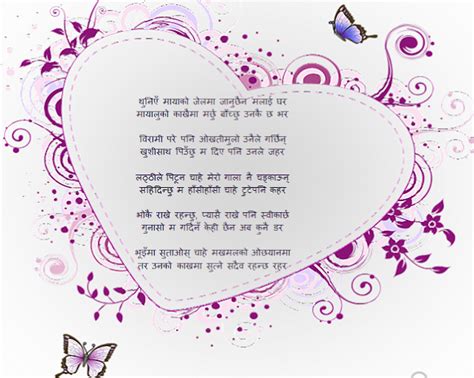 थुनिएँ मायाको जेलमा जानुछैन मलाई घर
मायालुको काखैमा मर्छु बाँच्छु उनकै छ भर
विरामी परे पनि ओखतीमुलो उनैले गर्छिन्
खुशीसाथ पिउँछु म दिए पनि उनले जहर
लठ्ठीले पिटुन चाहे मेरो गाला नै चड्काउन्
सहिदिन्छु म हाँसीहाँसी चाहे टुटेपनि कहर
भोकै राखे रहन्छु, प्यासै राखे पनि स्वीकार्छ
गुनासो म गर्दिनँ केही छैन अब कुनै डर
भूइँमा सुताओस् चाहे मखमलको ओछ्यानमा
तर उनको काखमा सुत्ने सदैव रहन्छ रहर